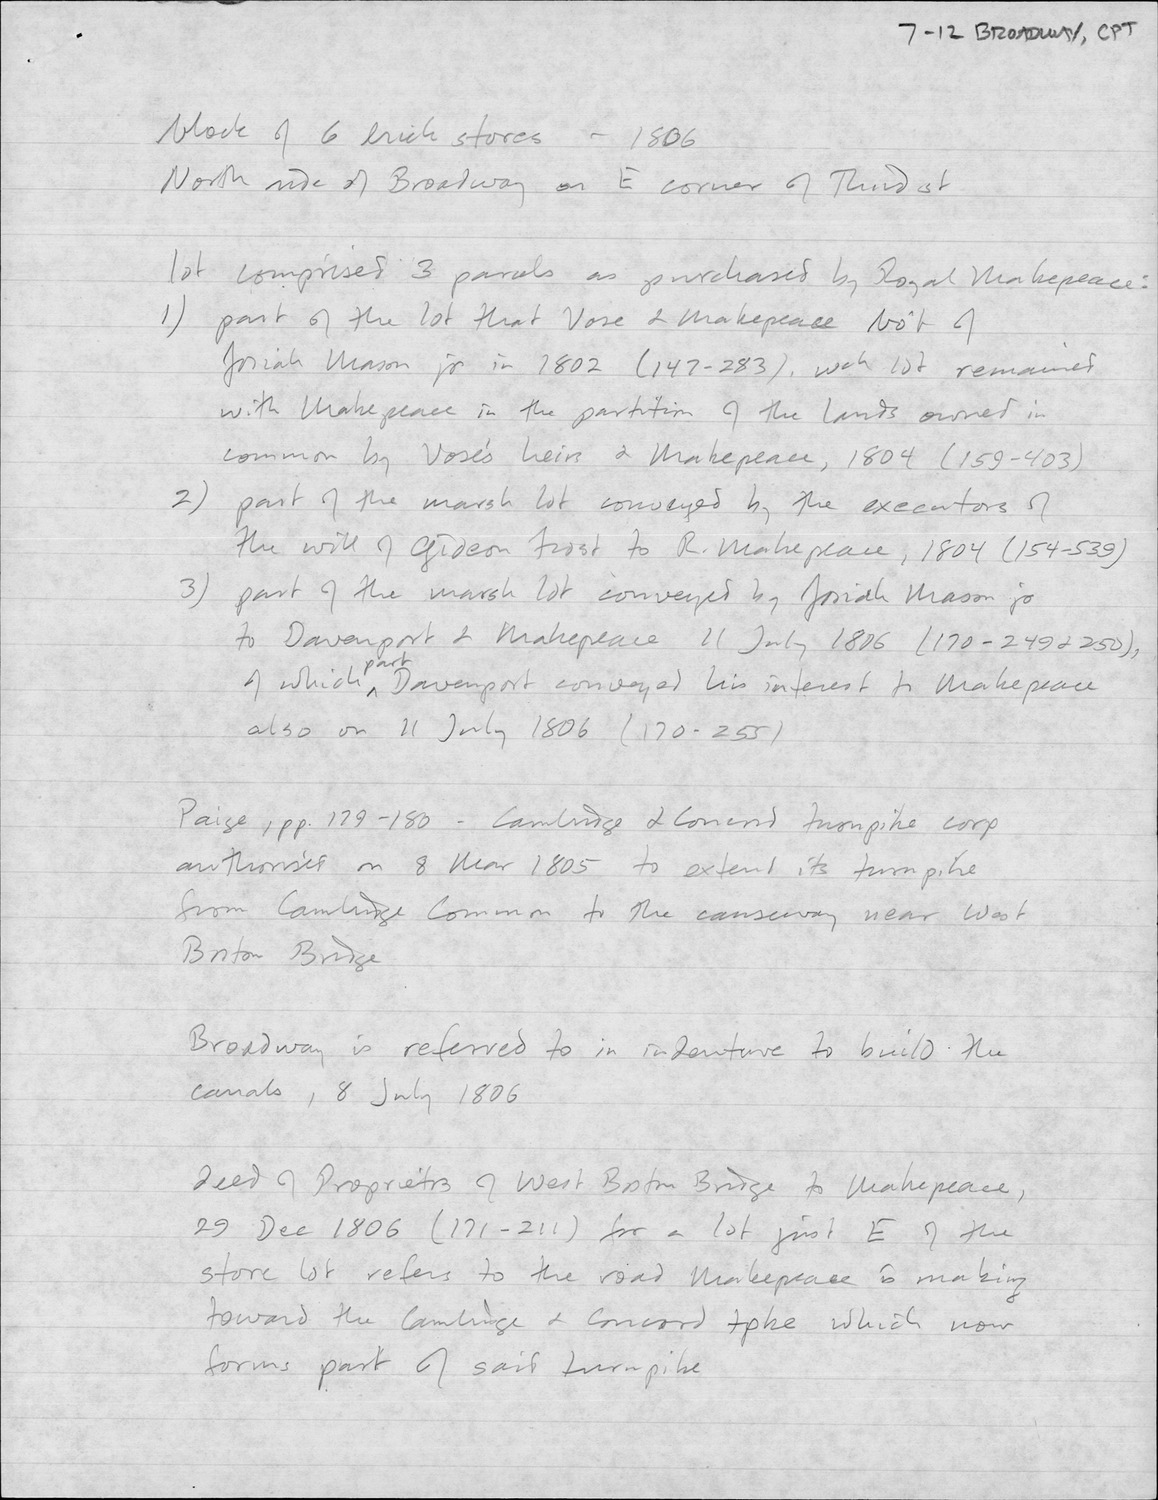 7-12 BROADWAY, CPT
block of 6 brick stores - 1806
North side of Broadway on E corner of Third st
lot comprised 3 parcels as purchased by Royal Makepeace:
1) part of the lot that Vose & Makepeace bo't of
Josiah Mason jr in 1802 (147-283), wch lot remained
with Makepeace in the partition of the lands owned in
common by Vose's heirs & Makepeace, 1804 (159-403)
2) part of the marsh lot conveyed by the executors of
the will of Gideon Frost to R. Makepeace, 1804 (154-539)
3) part of the marsh lot conveyed by Josiah Mason jr
to Davenport & Makepeace 11 July 1806 (170-249 & 250),
of which part Davenport conveyed his interest to Makepeace
also on 11 July 1806 (170-255)
Paige, pp. 179-180 - Cambridge & Concord turnpike corp
authorised on 8 Mar 1805 to extend its turnpike
from Cambridge Common to the causeway near West
Boston Bridge
Broadway is referred to in indenture to build the
canals, 8 July 1806
deed of Proprietrs of West Boston Bridge to Makepeace,
29 Dec 1806 (171-211) for a lot just E of the
store lot refers to the road Makepeace is making
toward the Cambridge & Concord tpke which now
forms part of said turnpike